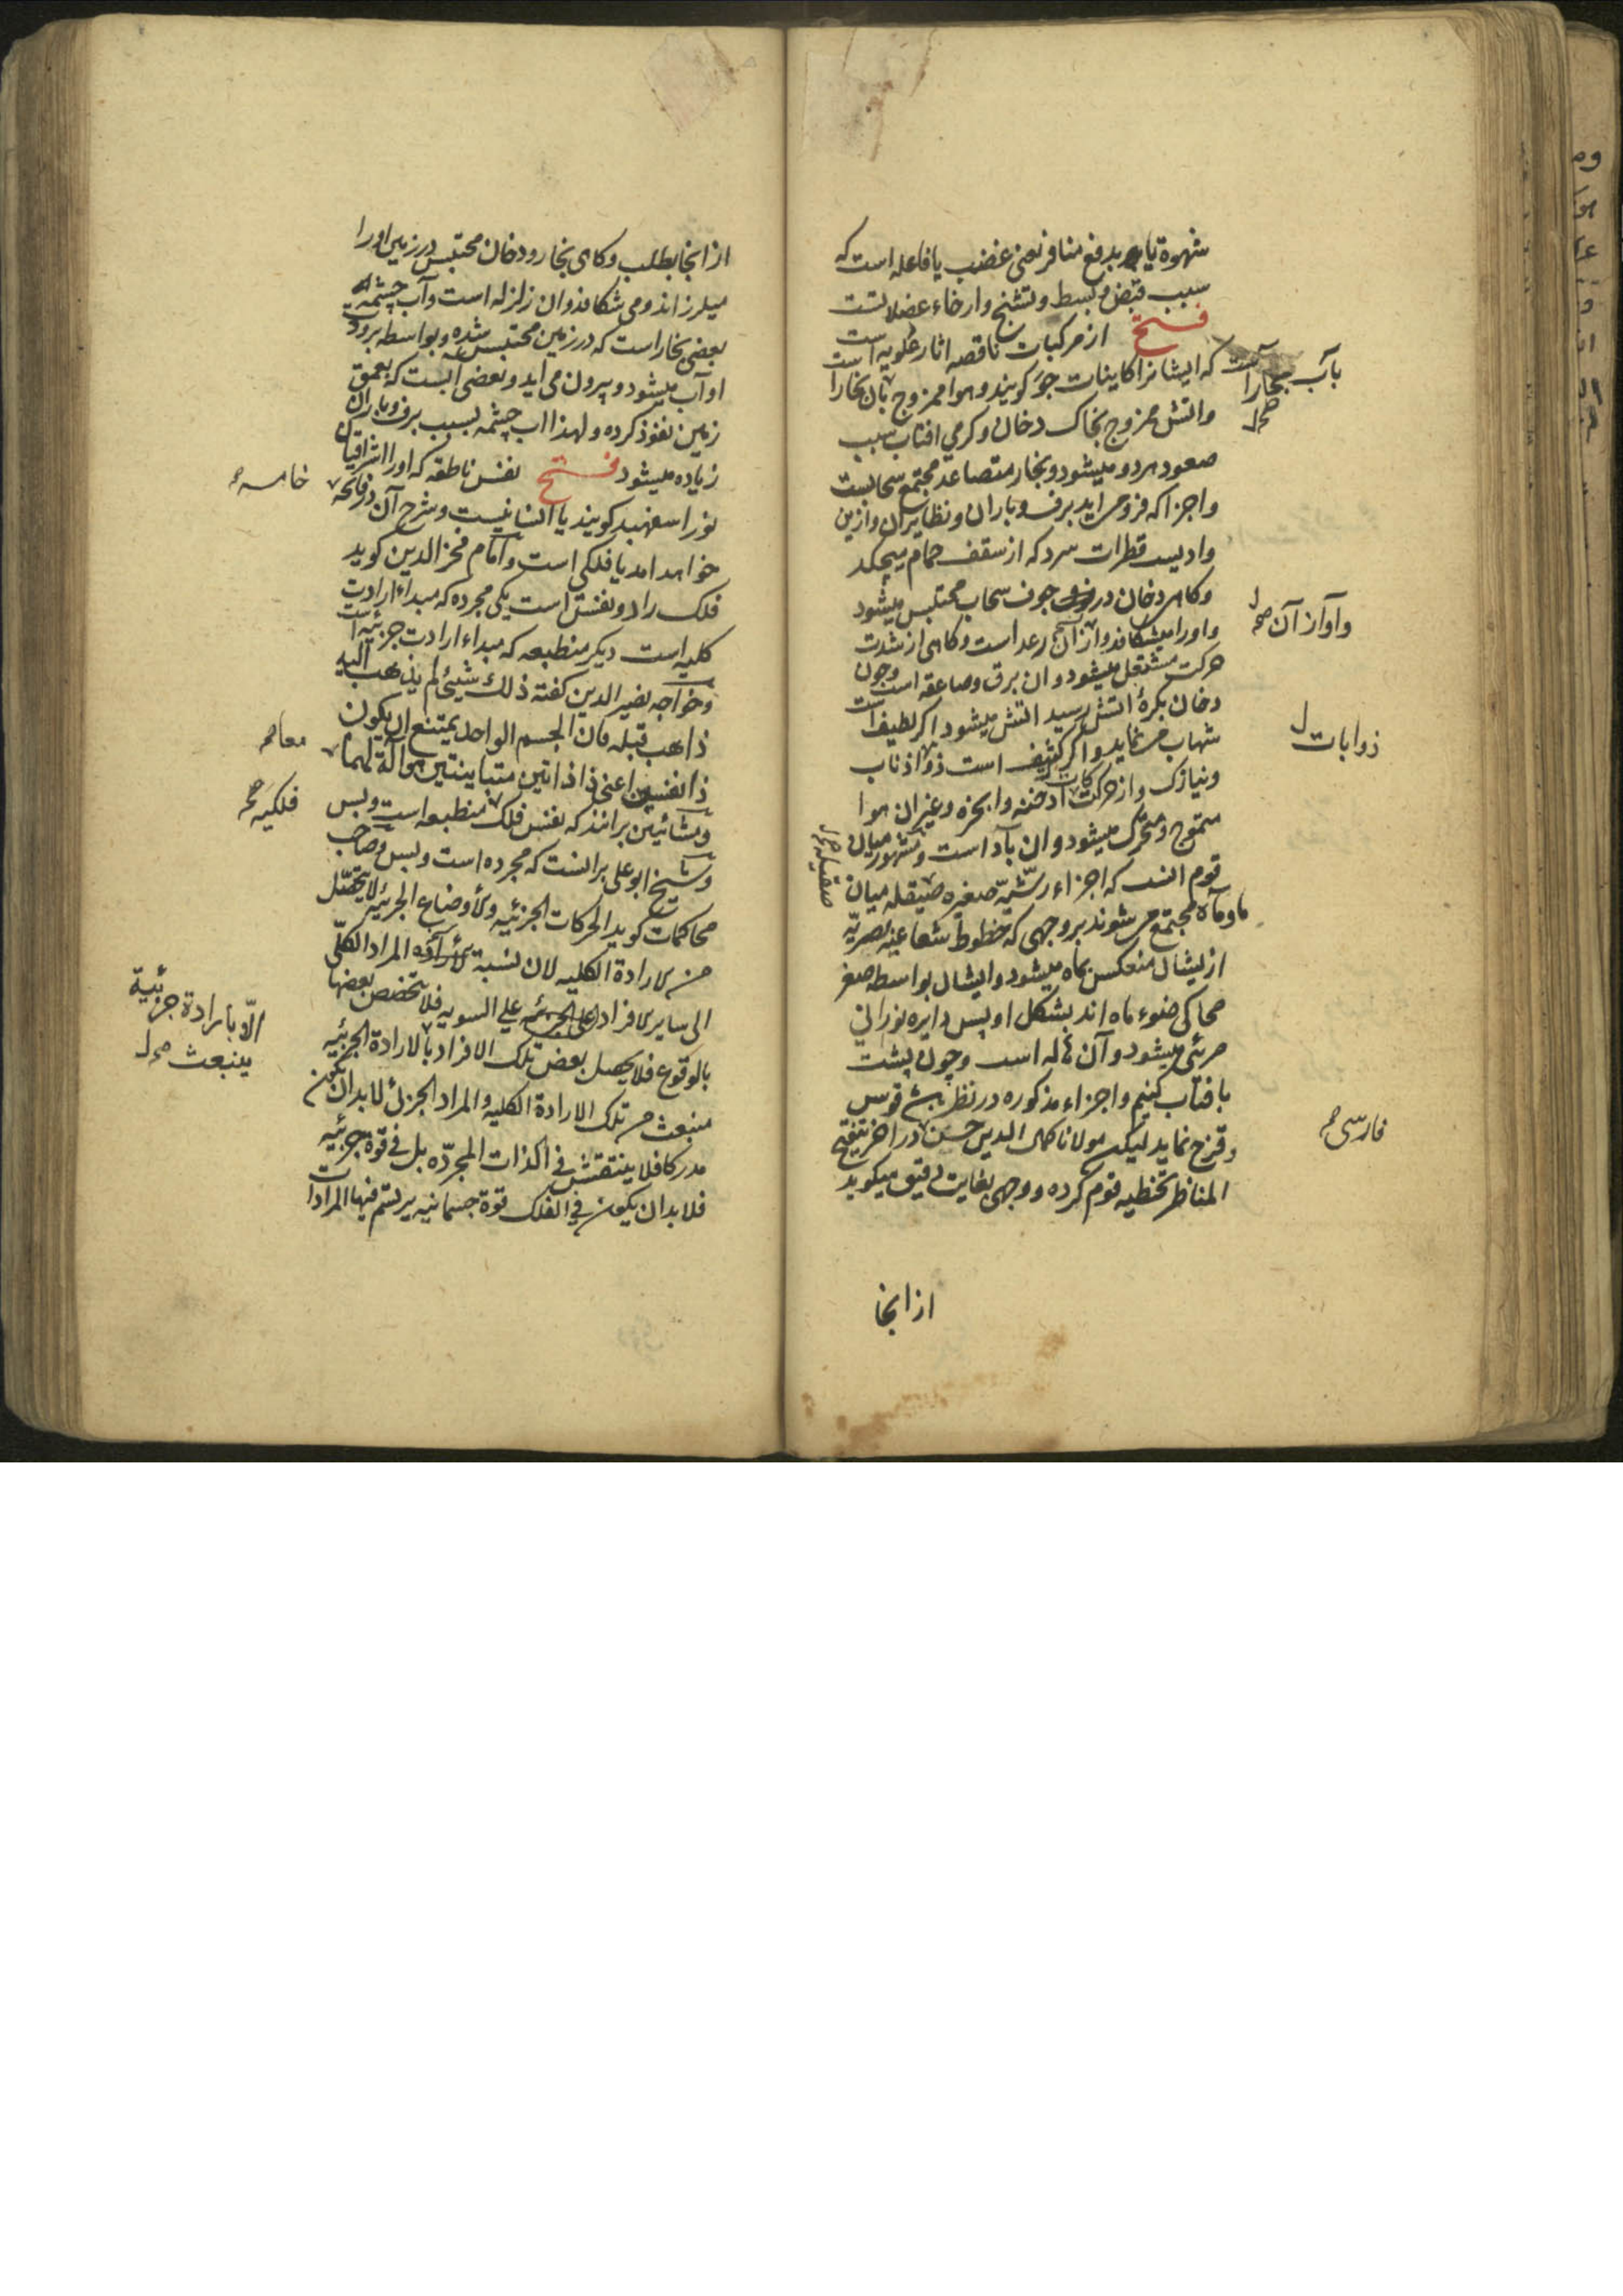 شهوة یا بر دفع منافر یعنی غضب یا فاعله است که
سبب قبض و بسط و تشنج و ارخاء عضلاتست
فتح از مرکبات ناقصه اثار علویه است
که ایشانرا کاینات جو کویند و هوا ممزوج بآن بخارا
بآب بخار است
صح
واتش ممزوج بخاک دخان و کرمی افتاب سبب
صعود هر دو میشود و بخار متصاعد مجتمع سحابست
و اجزا که فرو می اید برف و باران و نظایر آن و ازین
وادیست قطرات سرد که از سقف حمام میچکد
و کاهی دخان در جوف سحاب محتبس میشود
و اورا میشکافد و از آن رعد است و کاهی از شدت
و آواز آن صح
حرکت مشتعل میشود و ان برق و صاعقه است و چون
دخان بکرهٔ اتش رسید اتش میشود اکر لطیف است
شهاب می نماید و اکر کثیف است ذوا اذناب
ذوابات ل
و نیازک و از حرکت ادخنه و ابخره و غیر ان هوا
متموج و متحرک میشود و ان باد است و مشهور میان
قوم انست که اجزاء رشیه صغیره صیقله میان
صقیله
ما و ماه مجتمع می شوند بر وجهی که خطوط شعاعیه بصریه
از یشان منعکس بماه میشود و ایشان بواسطه صغر
محاکی ضوء ماه اند بشکل او پس دایره نورانی
مرئی میشود و آن هاله است و چون پشت
بافتاب کنیم و اجزاء مذکوره در نظر باشد قوس
و قزح نماید لیکن مولانا کمال الدین حسن در اخر تنقیح
فارسی صح
المناظر تخطیه قوم کرده و وجهی بغایت دقیق میکوید
از انجا
از انجا بطلب و کاهی بخار و دخان محتبس در زمین اورا
میلرزاند و می شکافد و ان زلزله است و آب چشمه
بعضی بخار است که در زمین محتبس شده و بواسطه برودت
او آب میشود و بیرون می اید و بعضی ابست که بعمق
زمین نفوذ کرده و لهذا اب چشمه بسبب برف و باران
زیاده میشود فتح نفس ناطقه که اورا اشراقیان
نور اسفهبد کویند یا انسانیست و شرح آن در فاتحه
خامسه
خواهد امد یا فلکی است و امام فخر الدین کوید
فلک را دو نفس است یکی مجرده که مبداء ارادت
کلیه است دیکر منطبعه که مبداء ارادت جزئیه است
و خواجه نصیر الدین کفته ذلک شیئ لم یذهب الیه
ذاهب قبله فان الجسم الواحد یمتنع ان یکون
ذا نفسین اعنی ذا ذاتین متباینتین هو آلة لهما
معا صح
و مشائیین برانند که نفس فلک منطبعه است و بس
فلکیه صح
و شیخ ابو علی برانست که مجرده است و بس و صاحب
محاکمات کوید الحرکات الجزئیه و الأوضاع الجزئیه لا یتحصل
من الارادة الکلیه لان نسبة المراد الکلی
الی سایر الافراد علی السویه فلا یتخصص بعضها
بالوقوع فلا یحصل بعض تلک الافراد بالارادة الجزئیه
الّا بارادة جزئیة
ینبعث صح ل
منبعث من تلک الارادة الکلیه والمراد الجزئی لابد ان یکون
مدرکا فلا ینتقش فی الذات المجرّده بل فی قوة جزئیه
فلابد ان یکون فی الفلک قوة جسمانیه یرتسم فیها المرادات